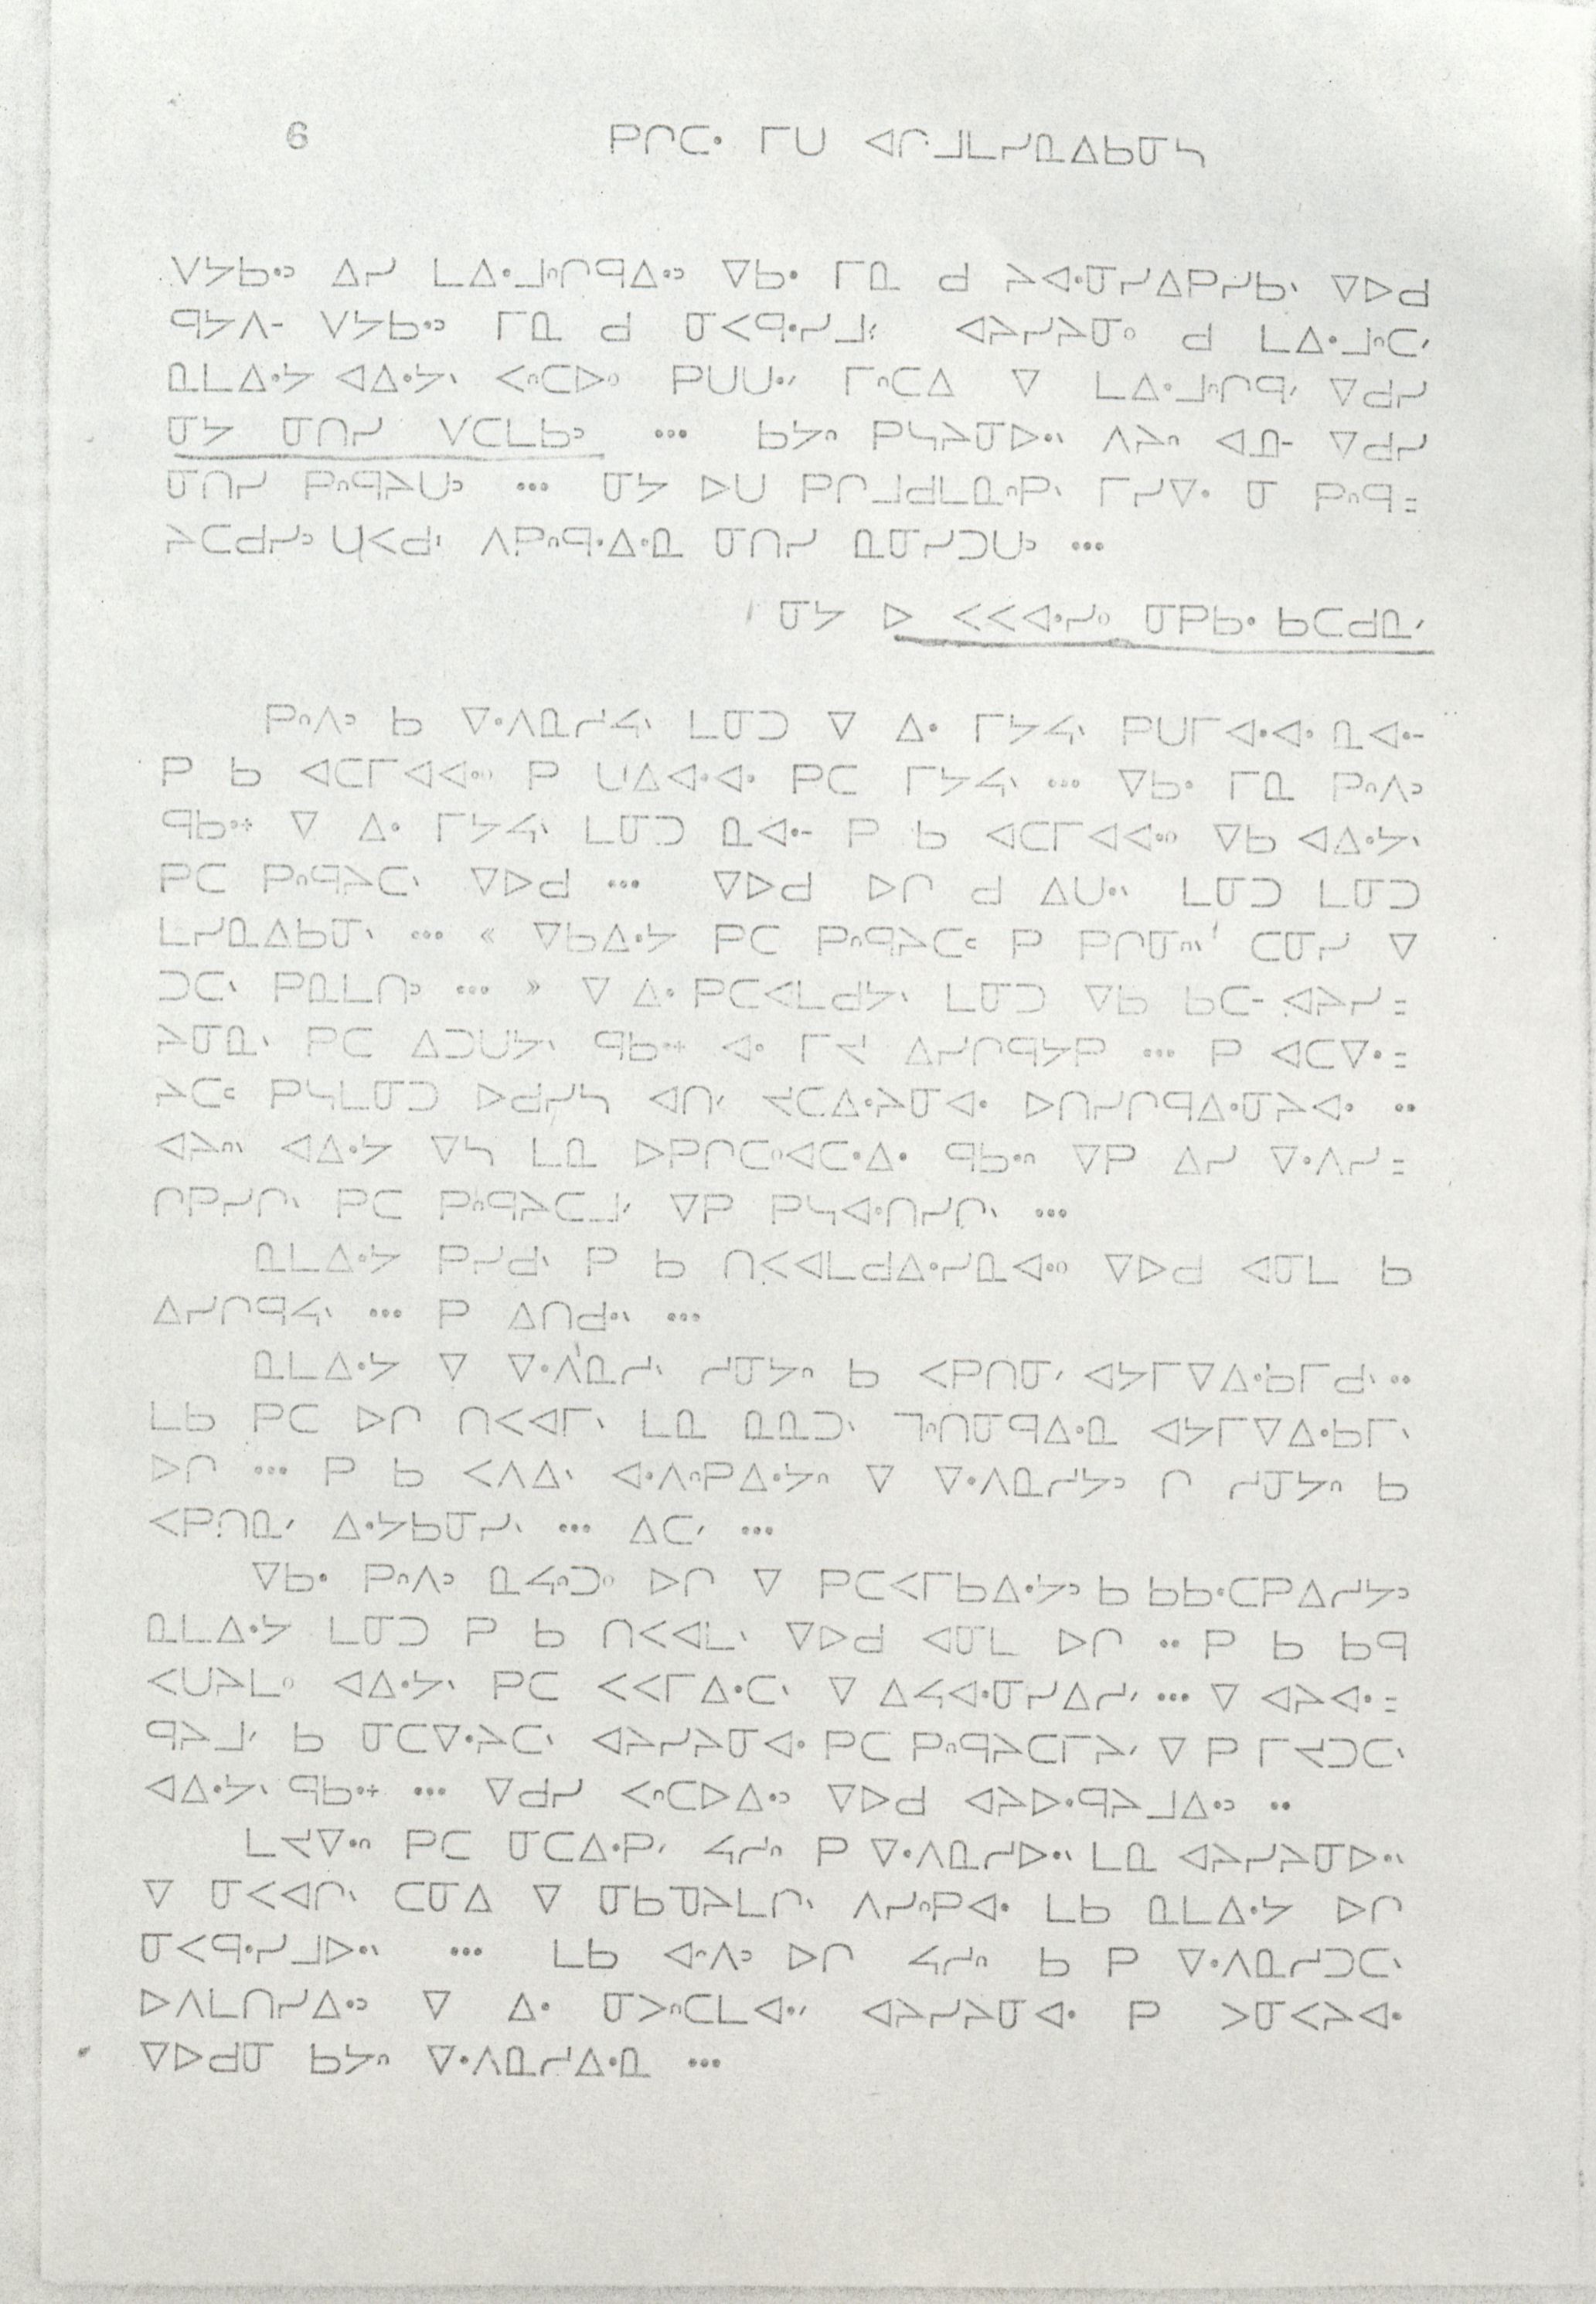 6 ᑭᒋᑕᐧ ᒥᑌ ᐊᒋᒧᒪᓯᓇᐃᑲᓂᔕ
ᐯᔭᑲᐧᐣ ᐃᓯ ᒪᐃᐧᒧᐢᒋᑫᐃᐧᐣ ᐁᑲᐧ ᒥᓇ ᑯ ᔨᐊᐧᓂᓯᐃᑭᓯᑲᐠ ᐁᐅᑯ
ᑫᔭᐱ ᐯᔭᑲᐧᐣ ᒥᓇ ᑯ ᓂᐸᑫᐧᓯᒧᐠ ᐊᔨᓯᔨᓂᐤ ᑯ ᒪᐃᐧᒧᐢᑕᐟ
ᓇᒪᐃᐧᔭ ᐊᐃᐧᔭᐠ ᐸᐢᑕᐅᐤ ᑭᑌᑌᐧᐟ ᒥᐢᑕᐃ ᐁ ᒪᐃᐧᒧᐢᒋᑫᐟ ᐁᑯᓯ
ᓂᔭ ᓂᑎᓯ ᐯᑕᒪᑲᐣ ... ᑲᔭᐢ ᑭᓴᔨᓂᐅᐧᐠ ᐱᔨᐢ ᐊᓇ ᐁᑯᓯ
ᓂᑎᓯ ᑭᐢᑫᔨᑌᐣ ... ᓂᔭ ᐅᑌ ᑭᒋᒧᑯᒪᓇᐢᑭᐠ ᒥᓯᐁᐧ ᓂ ᑭᐢᑫ=
ᔨᑕᑯᓯᐣ ᐱᑭᐢᑫᐧᐃᐧᓇ ᓂᑎᓯ ᓇᓂᓯᑐᑌᐣ ...
ᓂᔭ ᐅ ᐸᐸᐊᐧᓯᐤ ᓂᑭᑲᐧ ᑲᑕᑯᓇᐟ
ᑭᐢᐱᐣ ᑲ ᐁᐧᐱᓇᓱᔦᐠ ᒪᓂᑐ ᐁ ᐃᐧ ᒥᔭᔦᐠ ᑭᑌᒥᐊᐧᐊᐧ ᓇᐊᐧᐨ
ᑭ ᑲ ᐊᑕᒥᐊᐊᐧᐤ ᑭ ᑌᐃᐊᐧᐊᐧ ᑭᑕ ᒥᔭᔦᐠ ... ᐁᑲᐧ ᒥᓇ ᑭᐢᐱᐣ
ᑫᑲᐧᐩ ᐁ ᐃᐧ ᒥᔭᔦᐠ ᒪᓂᑐ ᓇᐊᐧᐨ ᑭ ᑲ ᐊᑕᒥᐊᐊᐧᐤ ᐁᑲ ᐊᐃᐧᔭᐠ
ᑭᑕ ᑭᐢᑫᔨᑕᐠ ᐁᐅᑯ ... ᐁᐅᑯ ᐅᒋ ᑯ ᐃᑌᐧᐠ ᒪᓂᑐ ᒪᓂᑐ
ᒪᓯᓇᐃᑲᓂᐠ ... « ᐁᑲᐃᐧᔭ ᑭᑕ ᑭᐢᑫᔨᑕᒼ ᑭ ᑭᒋᓂᐢᐠ ᑕᓂᓯ ᐁ
ᑐᑕᐠ ᑭᓇᒪᑎᐣ ... » ᐁ ᐃᐧ ᑭᑕᐸᒪᑯᔭᐠ ᒪᓂᑐ ᐁᑲ ᑲᑕᐨ ᐊᔨᓯ=
ᔨᓂᓇᐠ ᑭᑕ ᐃᑐᑌᔭᐠ ᑫᑲᐧᐩ ᐊᐧ ᒥᔪ ᐃᓯᒋᑫᔭᑭ ... ᑭ ᐊᑕᐁᐧ=
ᔨᑕᒼ ᑭᓴᒪᓂᑐ ᐅᑯᓯᓴ ᐊᑎᐟ ᔪᑕᐃᐧᔨᓂᐊᐧ ᐅᑎᓯᒋᑫᐃᐧᓂᔨᐊᐧ ..
ᐊᔨᐢ ᐊᐃᐧᔭ ᐁᓴ ᒪᓇ ᐅᑭᒋᑕᐤᐊᑕᐧᐃᐧ ᑫᑲᐧᐢ ᐁᑭ ᐃᓯ ᐁᐧᐱᓯ=
ᒋᑭᓯᒋᐠ ᑭᑕ ᑭᐢᑫᔨᑕᒧᐟ ᐁᑭ ᑭᓴᐊᐧᑎᓯᒋᐠ ...
ᓇᒪᐃᐧᔭ ᑭᓯᑯᐠ ᑭ ᑲ ᑎᐸᐊᒪᑯᐃᐧᓯᓇᐊᐧᐤ ᐁᐅᑯ ᐊᓂᒪ ᑲ
ᐃᓯᒋᑫᔦᐠ ... ᑭ ᐃᑎᑯᐧᐠ ...
ᓇᒪᐃᐧᔭ ᐁ ᐁᐧᐱᓇᓱᐠ ᓱᓂᔭᐢ ᑲ ᐸᑭᑎᓂᐟ ᐊᔭᒥᐁᐃᐧᑲᒥᑯᐠ ..
ᒪᑲ ᑭᑕ ᐅᒋ ᑎᐸᐊᒥᐠ ᒪᓇ ᓇᓇᑐᐠ ᒣᐢᑎᓂᑫᐃᐧᓇ ᐊᔭᒥᐁᐃᐧᑲᒥᐠ
ᐅᒋ ... ᑭ ᑲ ᐸᐱᐃᐠ ᐊᐧᐱᐢᑭᐃᐧᔭᐢ ᐁ ᐁᐧᐱᓇᓱᔭᐣ ᒋ ᓱᓂᔭᐢ ᑲ
ᐸᑭᑎᓇᐟ ᐃᐧᔭᑲᓂᓯᐠ ... ᐃᑕᐟ ...
ᐁᑲᐧ ᑭᐢᐱᐣ ᓇᔦᐢᑐᐤ ᐅᒋ ᐁ ᑭᑕᐸᒥᑲᐃᐧᔭᐣ ᑲ ᑲᑲᐧᑕᑭᐃᓱᔭᐣ
ᓇᒪᐃᐧᔭ ᒪᓂᑐ ᑭ ᑲ ᑎᐸᐊᒪᐠ ᐁᐅᑯ ᐊᓂᒪ ᐅᒋ .. ᑭ ᑲ ᑲᑫ
ᐸᑌᔨᒪᐤ ᐊᐃᐧᔭᐠ ᑭᑕ ᐸᐸᒥᐃᐧᑕᐠ ᐁ ᐃᔦᐊᐧᓂᓯᐃᓱᐟ ... ᐁ ᐊᔨᐊᐧ=
ᑫᔨᒧᐟ ᑲ ᓂᑕᐁᐧᔨᑕᐠ ᐊᔨᓯᔨᓂᐊᐧ ᑭᑕ ᑭᐢᑫᔨᑕᒥᔨᐟ ᐁ ᑭ ᒥᔪᑐᑕᐠ
ᐊᐃᐧᔭᐠ ᑫᑲᐧᐩ ... ᐁᑯᓯ ᐸᐢᑕᐅᐃᐧᐣ ᐁᐅᑯ ᐊᔨᐅᐧᑫᔨᒧᐃᐧᐣ ..
ᒪᔪᐁᐧᐢ ᑭᑕ ᓂᑕᐃᐧᑭᐟ ᔦᓱᐢ ᑭ ᐁᐧᐱᓇᓱᐅᐧᐠ ᒪᓇ ᐊᔨᓯᔨᓂᐅᐧᐠ
ᐁ ᓂᐸᐊᒋᐠ ᑕᓂᐃ ᐁ ᓂᑲᓂᔨᒪᒋᐠ ᐱᓯᐢᑭᐊᐧ ᒪᑲ ᓇᒪᐃᐧᔭ ᐅᒋ
ᓂᐸᑫᐧᓯᒧᐅᐧᐠ ... ᒪᑲ ᐊᐧᐢᐱᐣ ᐅᒋ ᔦᓱᐢ ᑲ ᑭ ᐁᐧᐱᓇᓱᑐᑕᐠ
ᐅᐱᒪᑎᓯᐃᐧᐣ ᐁ ᐃᐧ ᓂᐳᐢᑕᒪᐊᐧᐟ ᐊᔨᓯᔨᓂᐊᐧ ᑭ ᐳᓂᐸᔨᐊᐧ
ᐁᐅᑯᓂ ᑲᔭᐢ ᐁᐧᐱᓇᓱᐃᐧᓇ ...